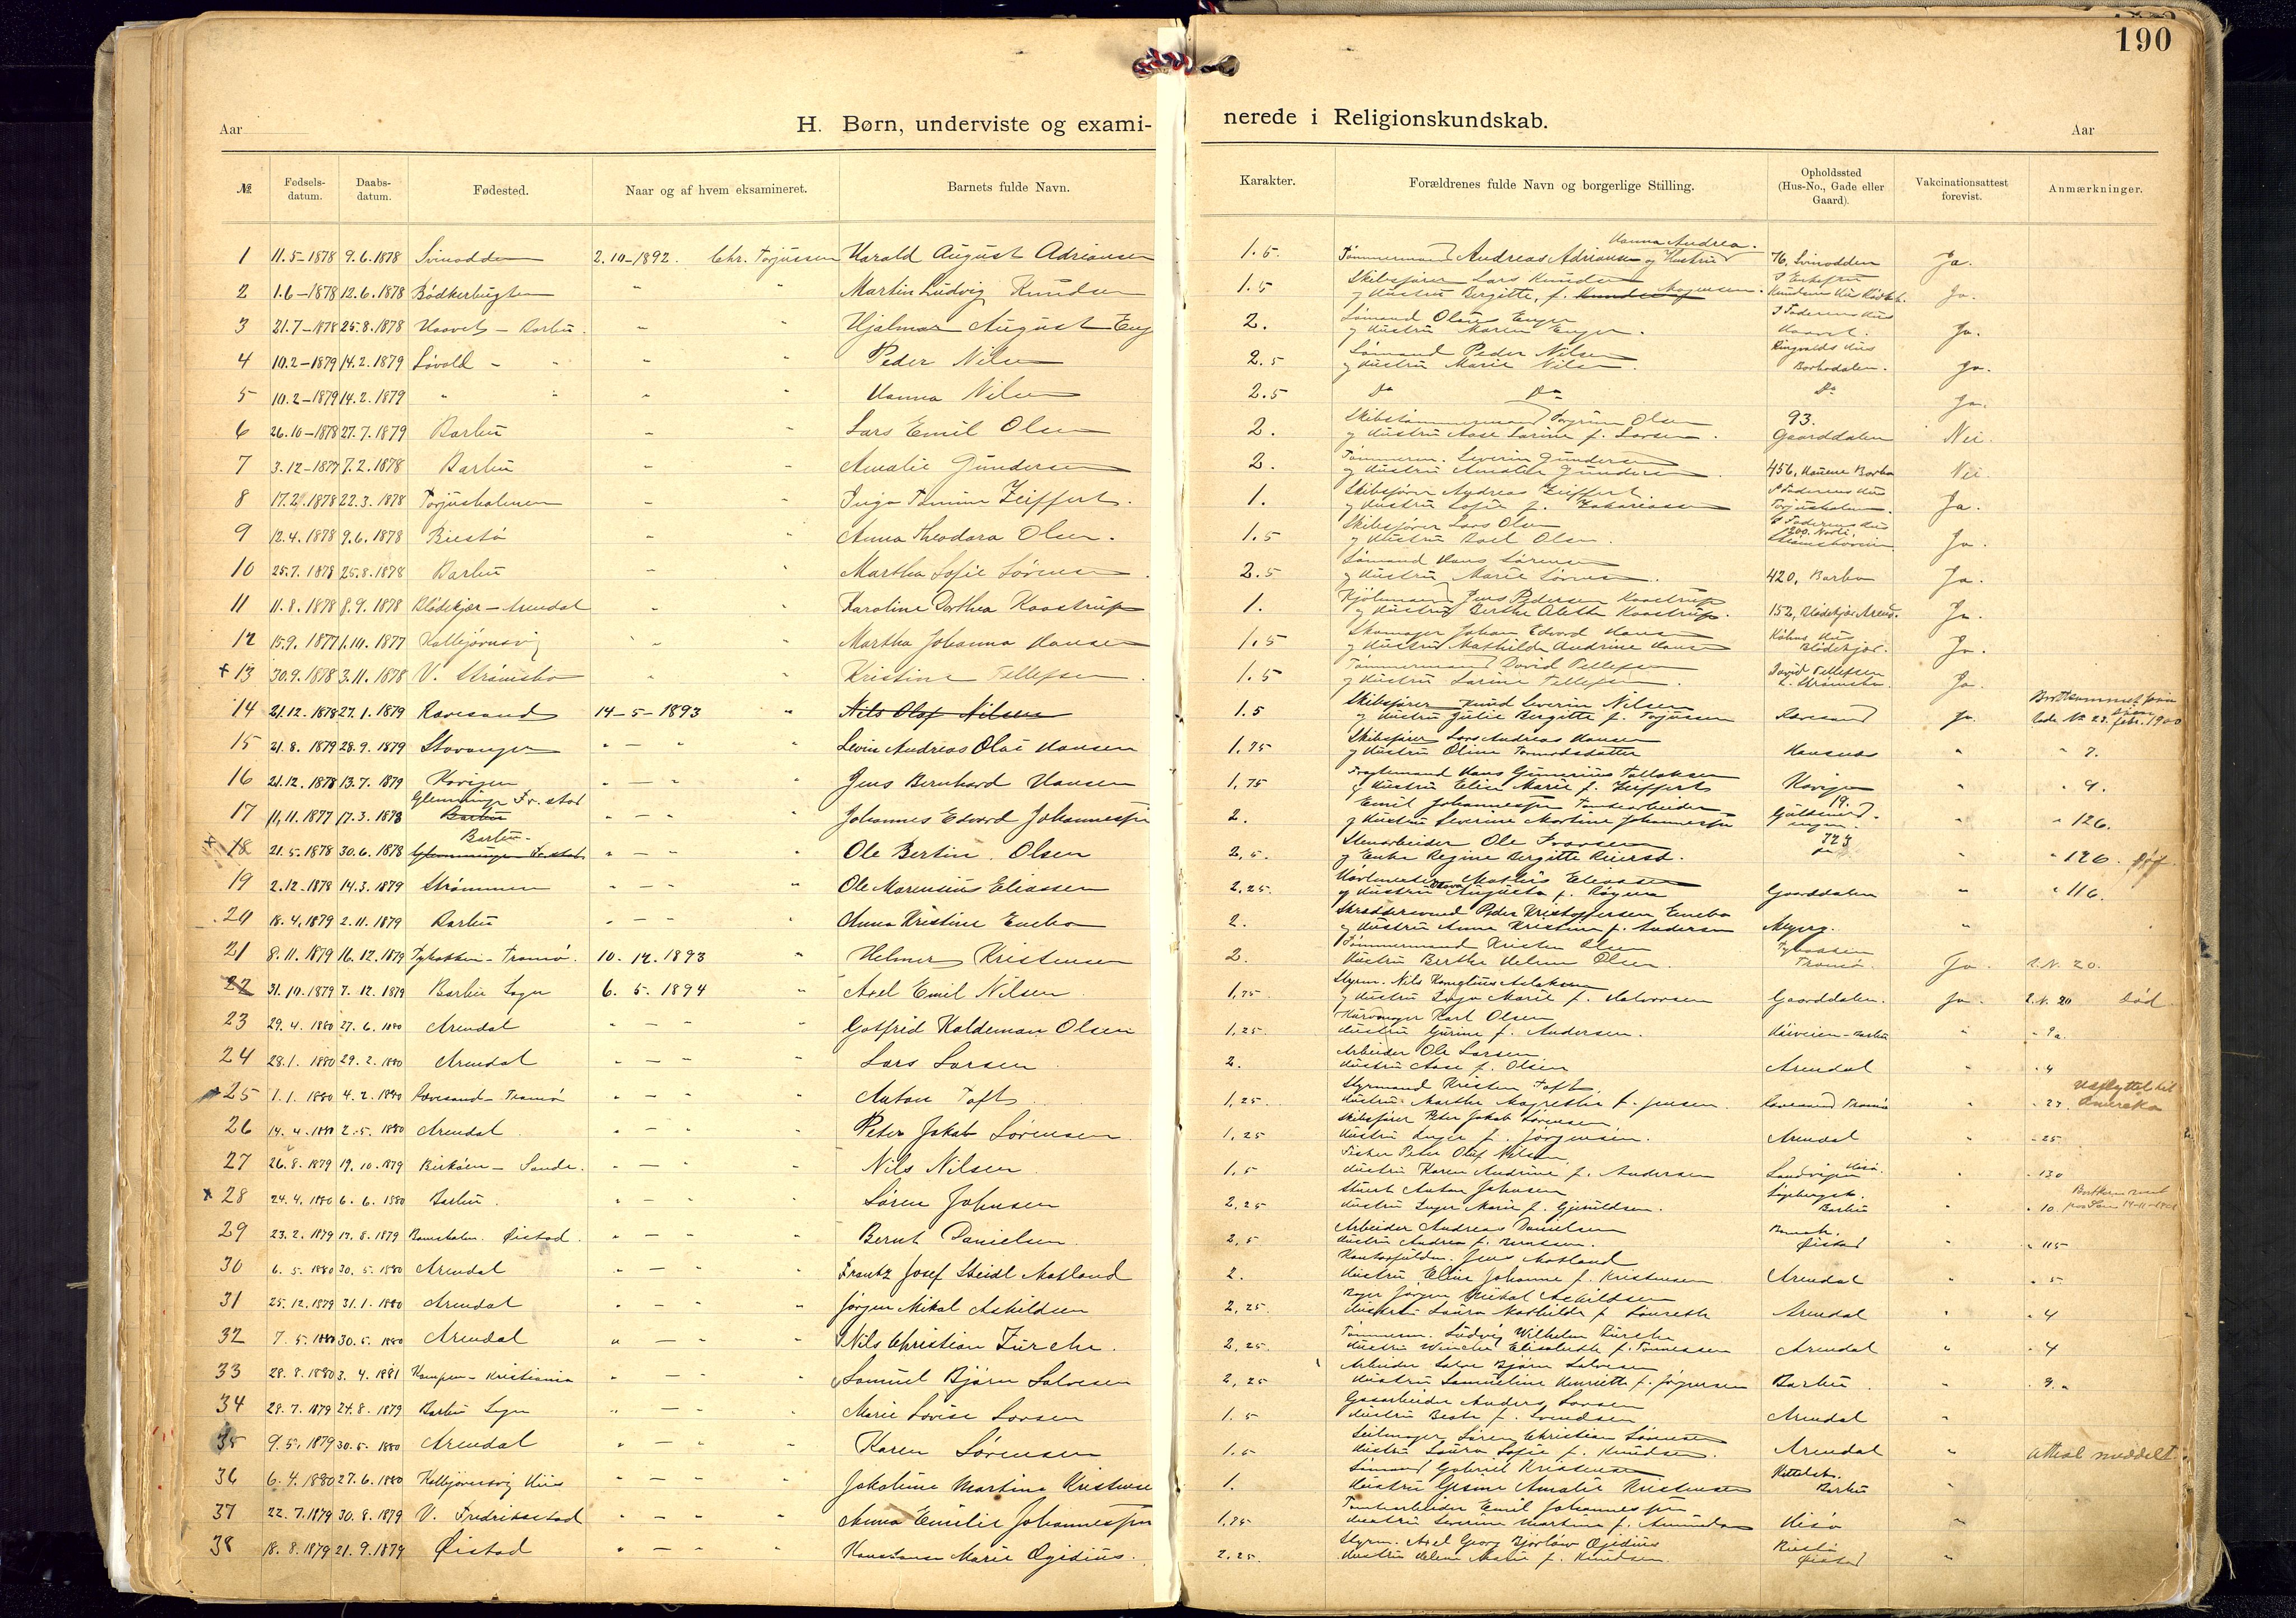 190
Aar
H. Børn, underviste og exami-
nerede i Religionskundskab.
Aar
№ Fødsels-datum. Daabs-datum. Fødested. Naar og af hvem eksamineret. Barnets fulde Navn. Karakter. Forældrenes fulde Navn og borgerlige Stilling. Opholdssted (Hus-No., Gade eller Gaard). Vakcinationsattest forevist. Anmærkninger.
1 11.5-1878 9.6.1878 Svinodden 2.10-1892. Chr. Torjussen Harald August Adriansen 1.5 Tømmermand Andreas Adriansen og Hustru Hanna Andrea. 76. Svinodden Ja.
2 1.6-1878 12.6.1878 Bödkerbugten " " Martin Ludvig Knudsen 1.5 Skibsfører Lars Knudsen
og Hustru Bergitte, f. Mogensen. Ja.
3 21.7-1878 25.8.1878 Haavet - Barbu. " " Hjalmar August Eng 2. Sømand Olaus Enger
og Hustru Maren Enger. I Faderens Hus Haavet. Ja.
4 10.2-1879 14.2.1879 Lövold - " " " Peder Nilsen 2.5 Sømand Peder Nilsen
og Hustru Marie Nilsen. Ringvolds Hus Barbodalen. Ja.
5 10.2-1879 14.2.1879 " " " " Hanna Nilsen 2.5 Do Do Do Ja.
6 26.10-1878 27.7.1879 Barbu " " Lars Emil Olsen 2. Skibstømmermand Jørgen Olsen
og Hustru Aase Larine f. Larsen. 93. Gaarddalen Nei.
7 3.12-1877 7.2.1878 Barbu " " Amalie Gundersen 2. Tømmerm. Severin Gundersen
og Hustru Amalie Gundersen. 456, Barbo Nei.
8 17.2.1878 22.3.1878 Torjusholmen " " Inga Tomine Zeiffert. 1. Skibsfører Andreas Zeiffert
og Hustru Sofie f. Zakariassen I Faderens Hus Torjusholmen. Ja.
9 12.4.1878 9.6.1878 Biestö " " Anna Theodora Olsen. 1.5 Skibsfører Lars Olsen
og Hustru Olsen. I Faderens Hus Ja.
10 25.7.1878 25.8.1878 Barbu " " Martha Sofie Sörensen 2.5 Sømand Hans Sørensen
og Hustru Marie Sørensen. 420, Barbo Ja.
11 11.8.1878 8.9.1878 Blödekjær - Arendal " " Karoline Dorthea Kaastrup 1. Kjøbmand Jens Pedersen Kaastrup
og Hustru Berthe Alette Kaastrup. 152, Blödekjær Arend. Ja.
12 15.9.1877 1.10.1877 Kolbjørnsvig " " Martha Johanna Hansen 1.5 Skomager Johan Edvard Hansen
og Hustru Mathilde Andrine Hansen Blödekjær. Ja.
+ 13 30.9.1878 3.11.1878 V. Strömsbo " " Kristine Tellefsen. 1.5 Tømmermand David Tellefsen
og Hustru Larine Tellefsen. David Tellefsen Ja.
14 21.12.1878 27.1.1879 Ravesand 14-5-1893 " Nils Olaf Nilsen 1.5 Skibsfører Knud Severin Nilsen
og Hustru Julie Bergitte f. Torjussen Ravesand Ja. febr. 1900
15 21.8.1879 28.9.1879 Stavanger " - " " Levin Andreas Olai Hansen 1.75 Skibsfører Lars Andreas Hansen
og Hustru Oline Tormodsdatter " " 7.
16 21.12.1878 13.7.1879 Kovigen " - " " Jens Bernhard Hansen 1,75 Hans Gunerius Tallaksen
og Hustru Elise Marie f. Zeiffert Kovigen " " 9.
17 11,11.1877 17.3.1878 Glemminge Fr. stad Barbu " - " " Johannes Edvard Johannessen 2. Emil Johannessen Tomtearbeider
og Hustru Severine Martine Johannessen 19. " " 126.
+ 18 21.5.1878 30.6.1878 Barbu Glemminge Fr. stad " - " " Ole Bertin Olsen 2,5. Stenarbeider Ole
og Enke Regine Bergitte Reiersd. 723 " " 126. død
19 2.12.1878 14.3.1879 Strømmen " - " " Ole Marensius Eliassen 2.25. Mathis Eliassen
og Hustru Augusta f. Gaarddalen " " 116.
20 18.4.1879 2.11.1879 Barbu " - " Anna Kristine Enebo 2. Skræddersvend Peder Kristoffersen Enebo
og Hustru Anne Kristine f. Andersen Myren. "
21 8.11.1879 16.12.1879 Tybakken - Tromö. 10.12.1893 " Helmer Kristensen 2. Tømmermand Kristen Olsen
Hustru Berthe Helene Olsen. Tybakken Tromö. Ja. L.N. 20.
22 31.10.1879 7.12.1879 Barbu Sogn 6.5.1894 " Axel Emil Nilsen 1,75. Styrm. Nils Aslaksen
og Hustru Inga Marie f. Halvorsen Gaarddalen. Ja. L.N. 20 Död
23 29.4.1880 27.6.1880 Arendal " - " " Gotfrid Haldeman Olsen 1,25. Karl Olsen
Hustru Gurine f. Andersen. - Barbu " " 9a.
24 28.1.1880 29.2.1880 Arendal " - " " Lars Larsen 2. Arbeider Ole Larsen
Hustru Aase f. Olsen Arendal " " 4
25 1.1.1880 4.2.1880 Ravesand - Tromö " - " " Anton Toft 1,25. Styrmand Kristen Toft.
Hustru Marthe Magrethe f. Jensen. Ravesand Tromö " " 27. Udflyttet til Amerika
26 14.4.1880 2.5.1880 Arendal. " - " " Peter Jakob Sørensen. 1,25 Skibsfører Peter Jakob Sørensen
Hustru Inger f. Jörgensen. Arendal " " 25
27 26.8.1879 19.10.1879 Birköen - Sande. " - " " Nils Nilsen 1.5 Fisker Peter Oluf Nilsen
Hustru Karen Andrine f. Andersen Sandvigen Hisö. " " 130
x 28 24.4.1880 6.6.1880 Barbu. " - " " Sören Johnsen 2,25 Stuert Anton Johnsen
Hustru Inger Marie f. Gjeruldsen. Barbu " " 10.
29 23.2.1879 17.8.1879 Øistad. " - " " Bernt Danielsen 2,5 Arbeider Andreas Danielsen
Hustru Andrea f. Øistad " " 115
30 6.5.1880 30.5.1880 Arendal " - " " Frantz Josef Steidl Aasland 2. Kontorfuldm. Jens Aasland
Hustru Elise Johanne f. Kristensen. Arendal " " 5
31 25.12.1879 31.1.1880 Arendal " - " " Jörgen Mikal Askildsen 2,25. Jörgen Mikal Askildsen
Hustru Laura Mathilde f. Arendal " " 4
32 7.5.1880 30.5.1880 Arendal " - " " Nils Christian Zürche. 2,25. Tømmerm. Ludvig Wilhelm Zürche
Hustru Wenche Elisabeth f. Tønnessen Arendal " " 4
33 28.8.1880 3.4.1881 Kampen - Kristiania " - " " Samuel Bjørn Salvesen 2,25 Arbeider Salve Bjørn Salvesen
Hustru Samueline Henriette f. Jörgensen Barbu " " 9. "
34 28.7.1879 24.8.1879 Barbu Sogn " - " " Marie Lovise Larsen 1.5 Gasarbeider Anders Larsen
Hustru Beate f. Svendsen Arendal "
35 9.5.1879 30.5.1880 Arendal " - " " Karen Sørensen 1.5 Seilmager Sören Christian Sörensen
Hustru Laura Sofie f. Knudsen. Arendal " Attest meddelt
36 6.4.1880 27.6.1880 Kolbjörnsvig Hisö " - " " Jakobine Martine Kristense 1. Sømand Gabriel Kristensen
Hustru Gesine Amalie Kristensen Barbu "
37 22.7.1879 30.8.1879 V. Fredriksstad " - " " Anna Emilie Johannessen 1,75 Tomtearbeider Emil Johannessen
Hustru Severine Martine f. Hisö "
38 18.8.1879 21.9.1879 Øistad " - " " Konstanse Marie Ægidius. 2.25. Styrm. Axel Georg Ægidius
Hustru Helene Marie f. Knudsen Øistad "